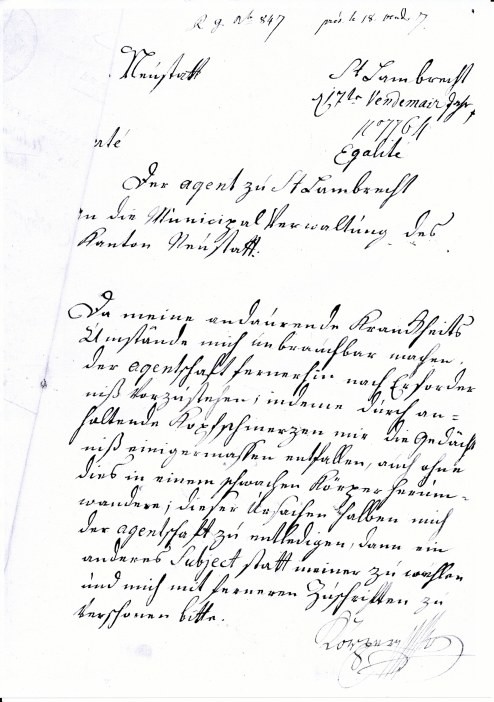 R g. No 847 prés. le 18. vend. 7.
Neustatt
St Lambrecht
17te Vendemair Jahr 7
No 776
Egalité
rté
Der agent zu St Lambrecht
an die Municipal Verwaltung des
Kanton Neustatt.
Da meine andaurende Krankheits
Umstände mich unbrauchbar machen.
der agentschaft fernerhin nach Erforder
niß vorzustehen; indeme durch an=
haltende Kopfschmerzen mir die Gedächt
niß einigermassen entfallen, auch ohne
dies in einem schwachen Körper herum=
wandere; dieser Ursachen halben mich
der agentschaft zu entledigen, dann ein
anderes Subject statt meiner zu wehlen
und mich mit ferneren Zuschriften zu
verschonen bitte.